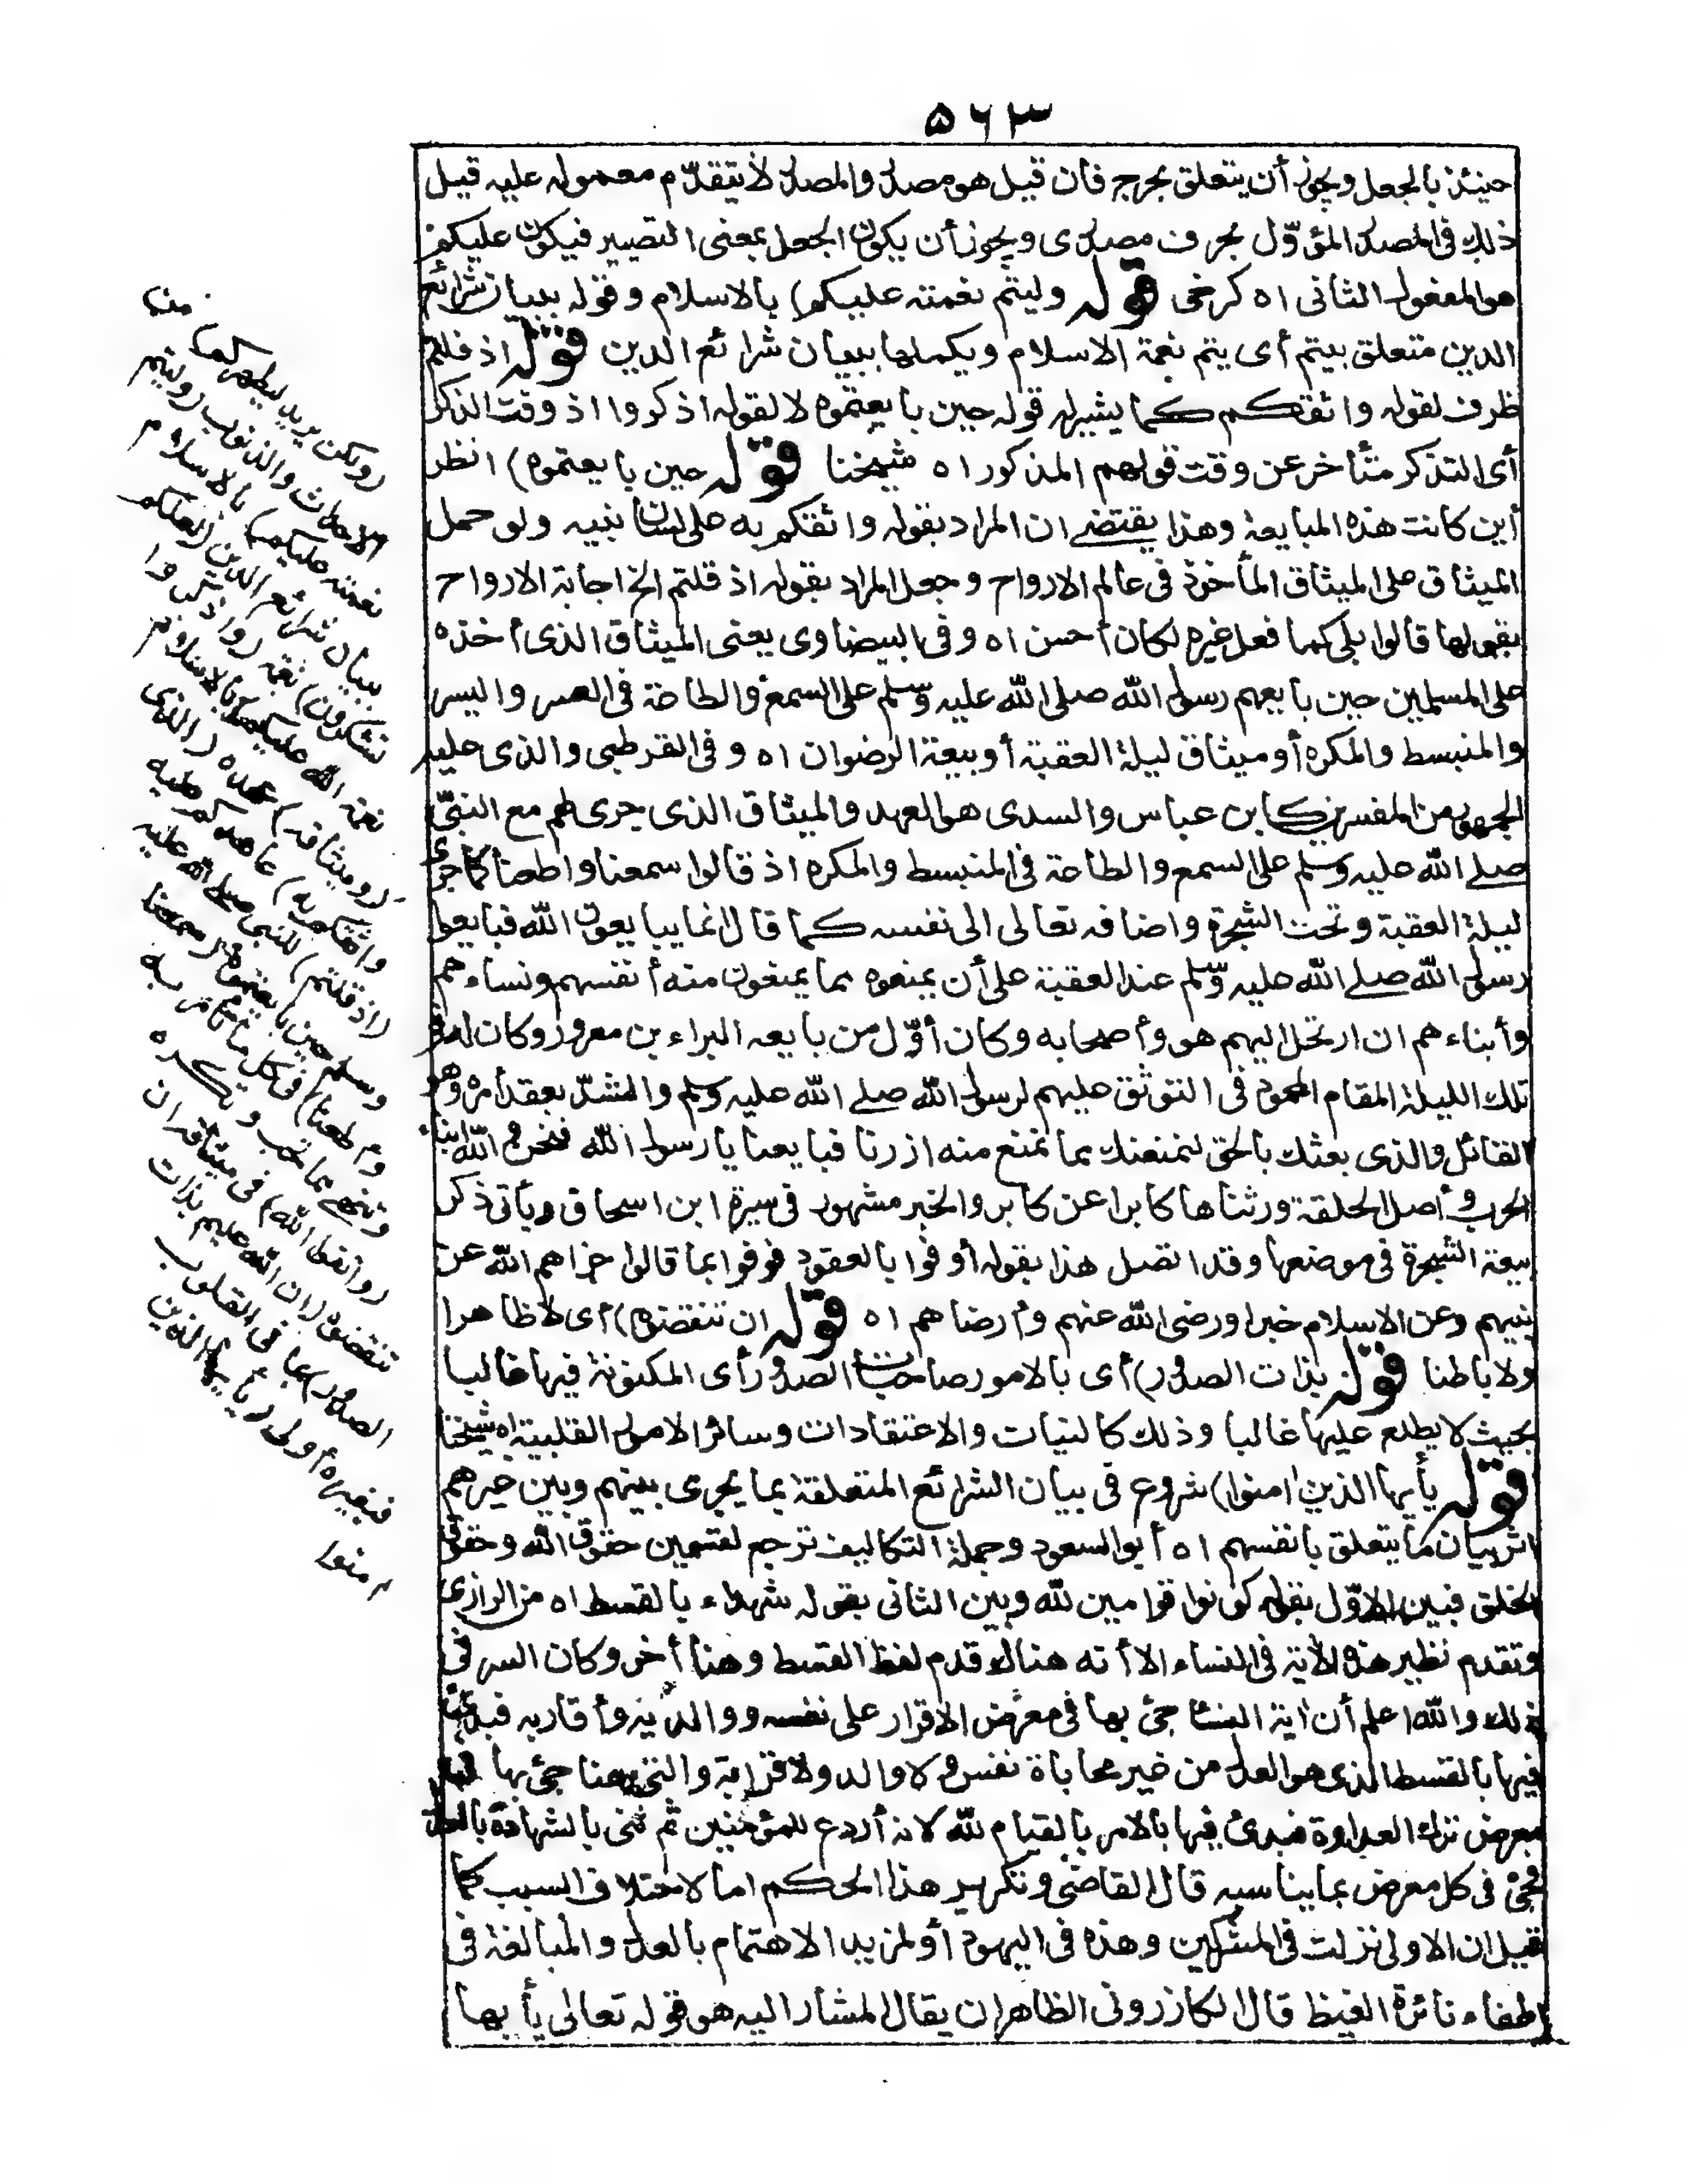 ٥٦٣
حينئذ بالجعل ويجوز أن يتعلق بحرج فان قيل هو مصدر والمصدر لا يتقدّم معموله عليه قيل
ذلك في المصدر المؤوّل بحرف مصدرى ويجوز أن يكون الجعل بمعنى التصيير فيكون عليكم
هو المفعول الثانى اه كرخى قوله وليتم نعمته عليكم) بالاسلام وقوله ببيان شرائع
الدين متعلق بيتم أى يتم نعمة الاسلام ويكملها ببيان شرائع الدين قوله اذ قلتم
ظرف لقوله واثقكم كما يشير له قوله حين بايعتموه لا لقوله اذكروا اذ وقت الذكر
أى التذكر متأخر عن وقت قولهم المذكور اه شيخنا قوله حين بايعتموه) انظر
أين كانت هذه المبايعة وهذا يقتضى ان المراد بقوله واثقكم به على لسان نبيه ولو حمل
الميثاق على الميثاق المأخوذ فى عالم الارواح وجعل المراد بقوله اذ قلتم الخ اجابة الارواح
بقولها قالوا بلى كما فعل غيره لكان أحسن اه وفى البيضاوى يعنى الميثاق الذى أخذه
على المسلمين حين بايعهم رسول الله صلى الله عليه وسلم على السمع والطاعة فى العسر واليسر
والمنبسط والمكره أو ميثاق ليلة العقبة أو بيعة الرضوان اه وفى القرطبى والذى عليه
الجمهور من المفسرين كابن عباس والسدى هو العهد والميثاق الذى جرى لهم مع النبىّ
صلى الله عليه وسلم على السمع والطاعة فى المنبسط والمكره اذ قالوا سمعنا واطعنا كما جرى
ليلة العقبة وتحت الشجرة واضافه تعالى الى نفسه كما قال انما يبايعون الله فبايعوا
رسول الله صلى الله عليه وسلم عند العقبة على أن يمنعوه مما يمنعون منه أنفسهم ونساءهم
وأبناءهم ان ارتحل اليهم هو وأصحابه وكان أوّل من بايعه البراء بن معرور وكان له فى
تلك الليلة المقام المحمود فى التوثق عليهم لرسول الله صلى الله عليه وسلم والشدّ بعقد أمره وهو
القائل والذى بعثك بالحق لنمنعنك مما نمنع منه ازرنا فبايعنا يا رسول الله فنحن والله ابناء
الحرب وأصل الحلقة ورثناها كابرا عن كابر والخبر مشهور فى سيرة ابن اسحاق ويأتى ذكر
بيعة الشجرة فى موضعها وقد اتصل هذا بقوله أوفوا بالعقود فوفوا بما قالوا جزاهم الله عن
نبيهم وعن الاسلام خيرا ورضى الله عنهم وأرضاهم اه قوله ان تنقضوه) أى لا ظاهرا
ولا باطنا قوله بذات الصدور) أى بالامور صاحبات الصدور أى المكنونة فيها غالبا
بحيث لا يطلع عليها غالبا وذلك كالنيات والاعتقادات وسائر الامور القلبية اه شيخنا
قوله يأيها الذين آمنوا) شروع فى بيان الشرائع المتعلقة بما يجرى بينهم وبين غيرهم
اثر بيان ما يتعلق بانفسهم اه أبو السعود وجملة التكاليف ترجع لقسمين حقوق الله وحقوق
الخلق فبين الاوّل بقوله كونوا قوامين لله وبين الثانى بقوله شهداء بالقسط اه من الرازى
وتقدم نظير هذه الآية فى النساء الا أنه هناك قدم لفظ القسط وهنا أخر وكان السر فى
ذلك والله اعلم أن آية النساء جئ بها فى معرض الاقرار على نفسه ووالديه وأقاربه فبدئ
فيها بالقسط الذى هو العدل من غير محاباة نفس ولا والد ولا قرابة والتى هنا جئ بها فى
معرض ترك العداوة فبدئ فيها بالامر بالقيام لله لانه أردع للمؤمنين ثم ثنى بالشهادة بالعدل
فجئ فى كل معرض بما يناسبه قال القاضى وتكرير هذا الحكم اما لاختلاف السبب كما
قيل ان الاولى نزلت فى المشركين وهذه فى اليهود أو لمزيد الاهتمام بالعدل والمبالغة فى
اطفاء نائرة الغيظ قال الكازرونى الظاهر ان يقال المشار اليه هو قوله تعالى يأيها
(ولكن يريد ليطهركم) من
الاحداث والذنوب (وليتم
نعمته عليكم) بالاسلام
ببيان شرائع الدين (لعلكم
تشكرون) نعمه (واذكروا
نعمة الله عليكم) بالاسلام
(وميثاقه) عهده (الذى
واثقكم به) عاهدكم عليه
(اذ قلتم) للنبى صلى الله عليه
وسلم حين بايعتموه (سمعنا
وأطعنا) فى كل ما تأمر به
وتنهى مما نحب ونكره
(واتقوا الله) فى ميثاقه ان
تنقضوه (ان الله عليم بذات
الصدور) بما فى القلوب
فبغيره أولى (يأيها الذين
آمنوا